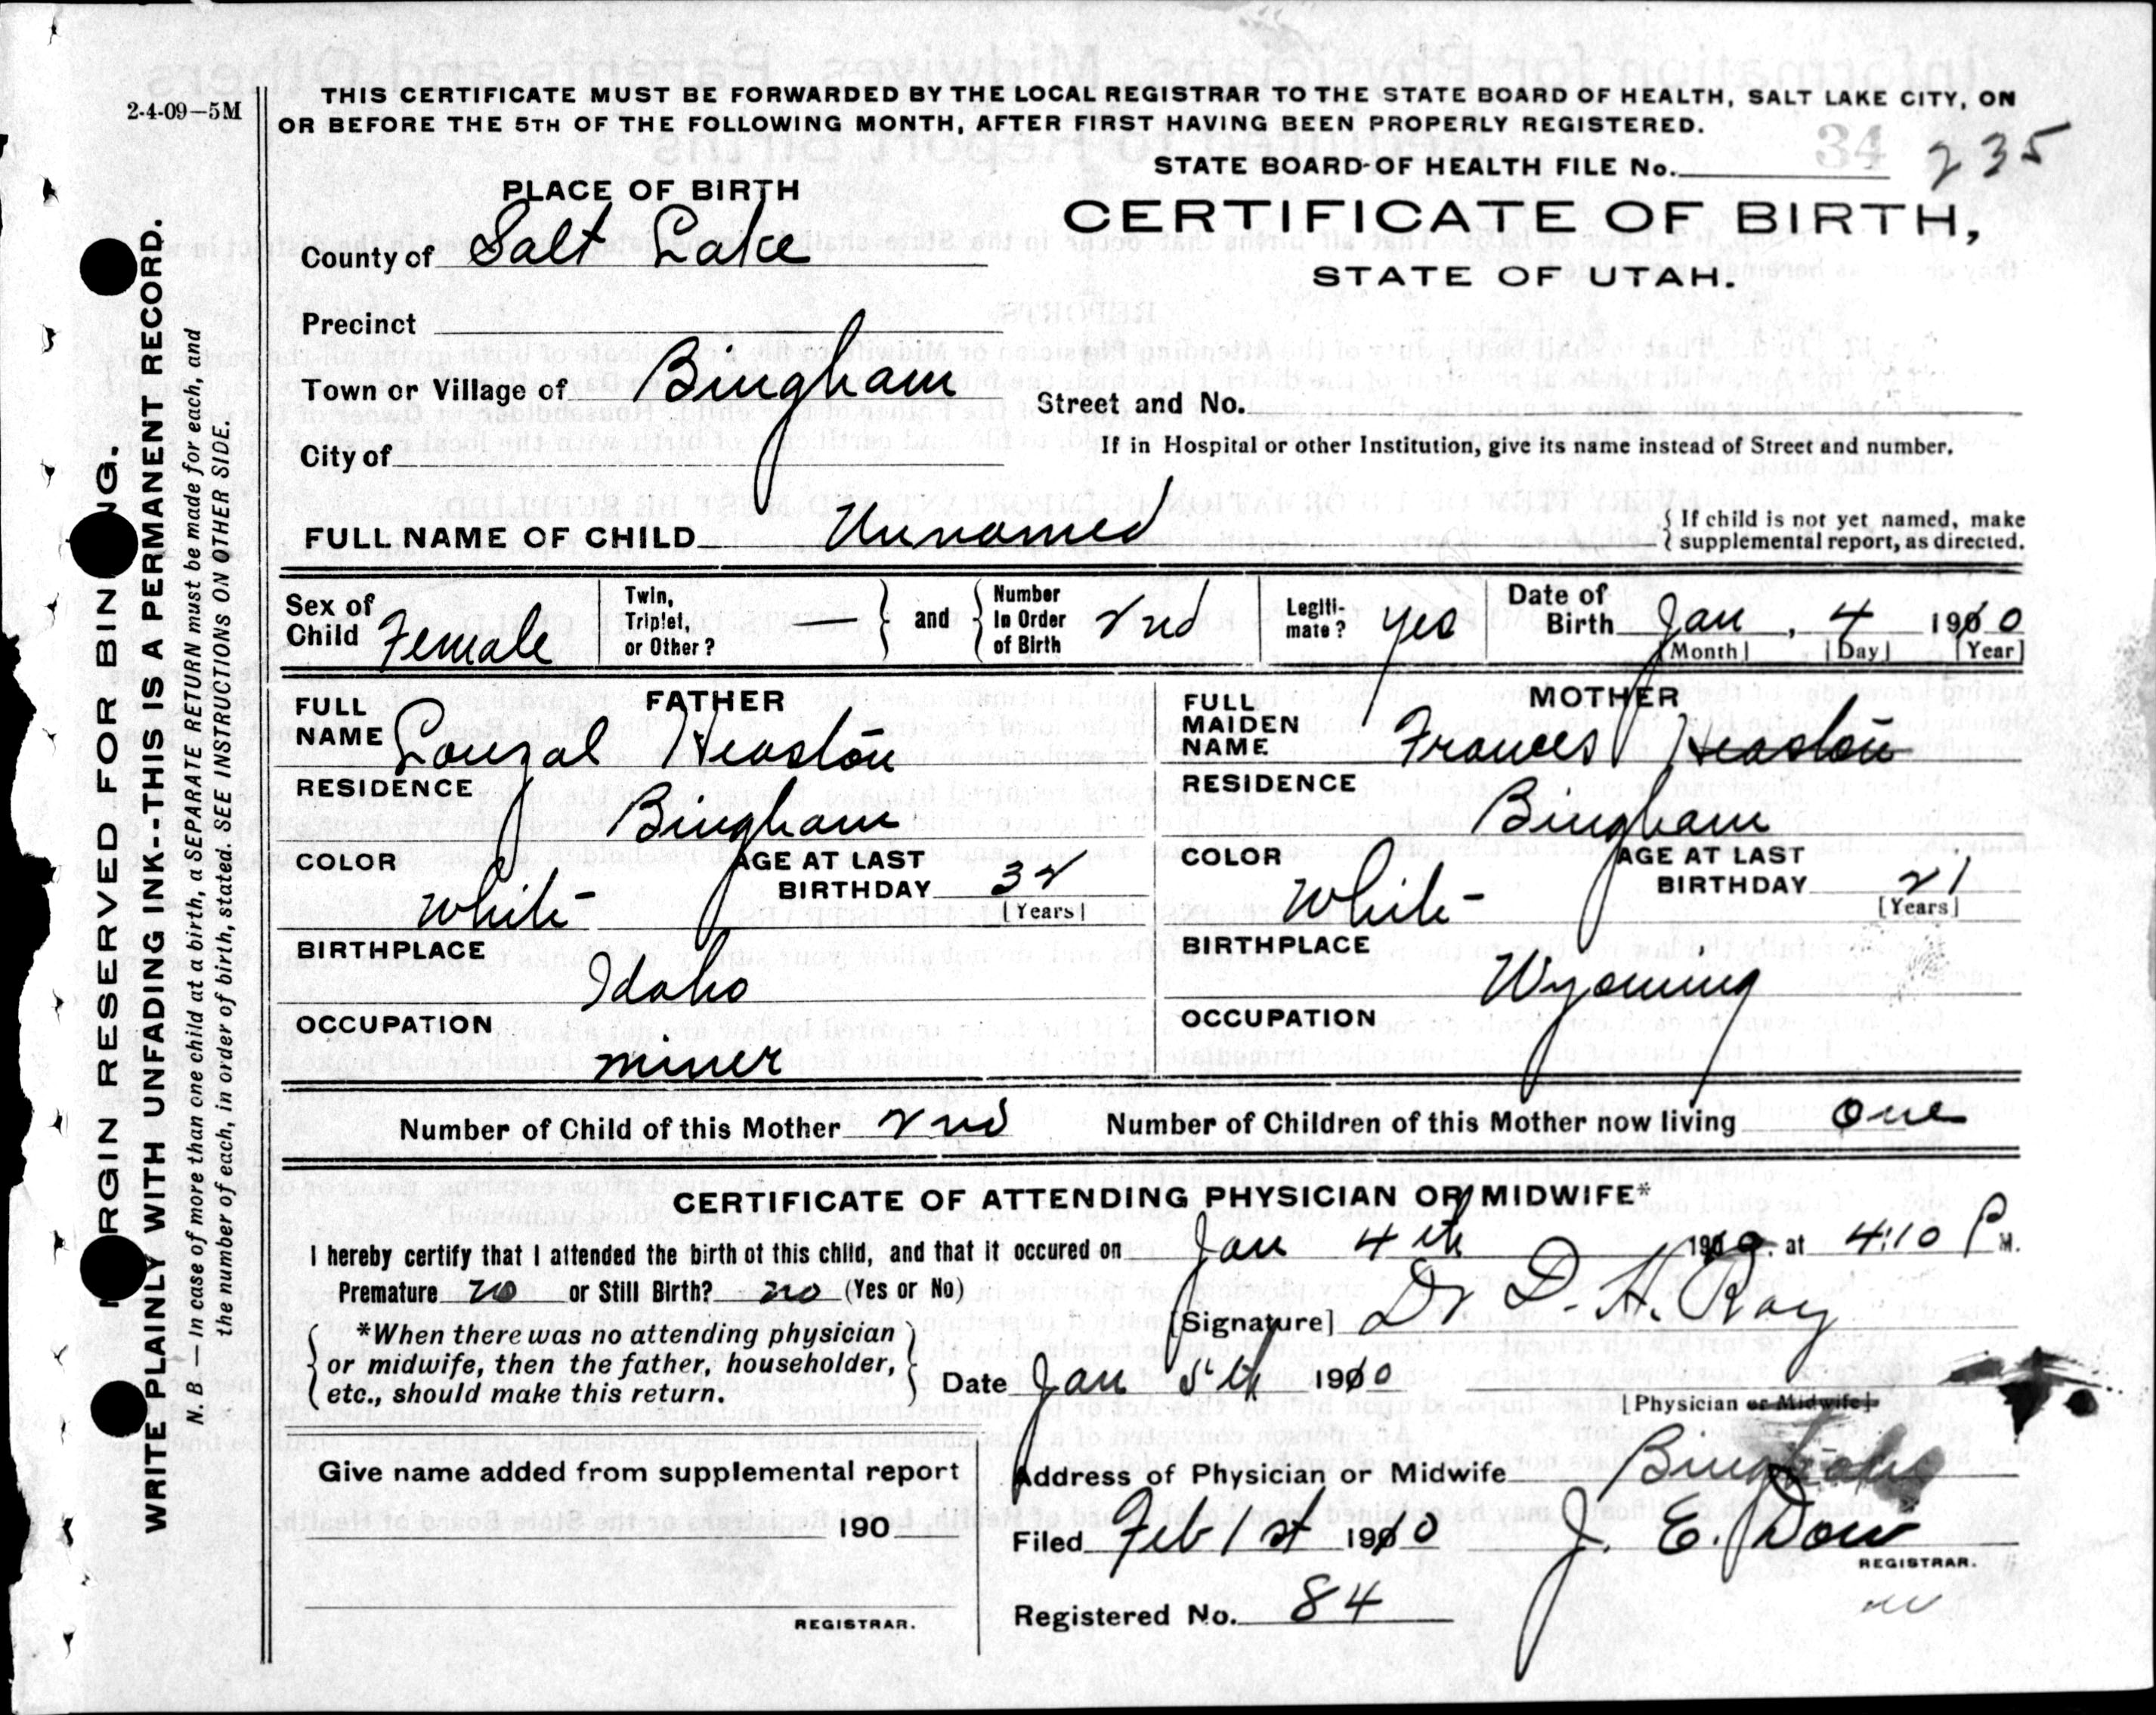 2-4-09—5M
THIS CERTIFICATE MUST BE FORWARDED BY THE LOCAL REGISTRAR TO THE STATE BOARD OF HEALTH, SALT LAKE CITY, ON
OR BEFORE THE 5TH OF THE FOLLOWING MONTH, AFTER FIRST HAVING BEEN PROPERLY REGISTERED.
STATE BOARD OF HEALTH FILE No. 34 235
PLACE OF BIRTH
CERTIFICATE OF BIRTH,
STATE OF UTAH.
County of Salt Lake
Precinct
Town or Village of Bingham
Street and No.
City of
If in Hospital or other Institution, give its name instead of Street and number.
FULL NAME OF CHILD Unnamed
If child is not yet named, make
supplemental report, as directed.
Sex of Child Female
Twin, Triplet, or Other? —
and
Number In Order of Birth 2nd
Legitimate? yes
Date of Birth Jan, 4 1910
[Month] [Day] [Year]
FATHER
FULL NAME Heaston
RESIDENCE Bingham
COLOR White
AGE AT LAST BIRTHDAY 32
[Years]
BIRTHPLACE Idaho
OCCUPATION miner
MOTHER
FULL MAIDEN NAME Frances Heaston
RESIDENCE Bingham
COLOR White
AGE AT LAST BIRTHDAY 21
[Years]
BIRTHPLACE Wyoming
OCCUPATION
Number of Child of this Mother 2nd
Number of Children of this Mother now living one
CERTIFICATE OF ATTENDING PHYSICIAN OR MIDWIFE*
I hereby certify that I attended the birth of this child, and that it occured on Jan 4th 1910, at 4:10 P M.
Premature no or Still Birth? no (Yes or No)
[Signature] Dr D. H. Ray
*When there was no attending physician
or midwife, then the father, householder,
etc., should make this return.
Date Jan 5th 1910
[Physician or Midwife]
Give name added from supplemental report
190
REGISTRAR.
Address of Physician or Midwife Bingham
Filed Feb 1st 1910 J. E. Dow
REGISTRAR.
Registered No. 84
MARGIN RESERVED FOR BINDING.
WRITE PLAINLY WITH UNFADING INK--THIS IS A PERMANENT RECORD.
N. B.—In case of more than one child at a birth, a SEPARATE RETURN must be made for each, and
the number of each, in order of birth, stated. SEE INSTRUCTIONS ON OTHER SIDE.